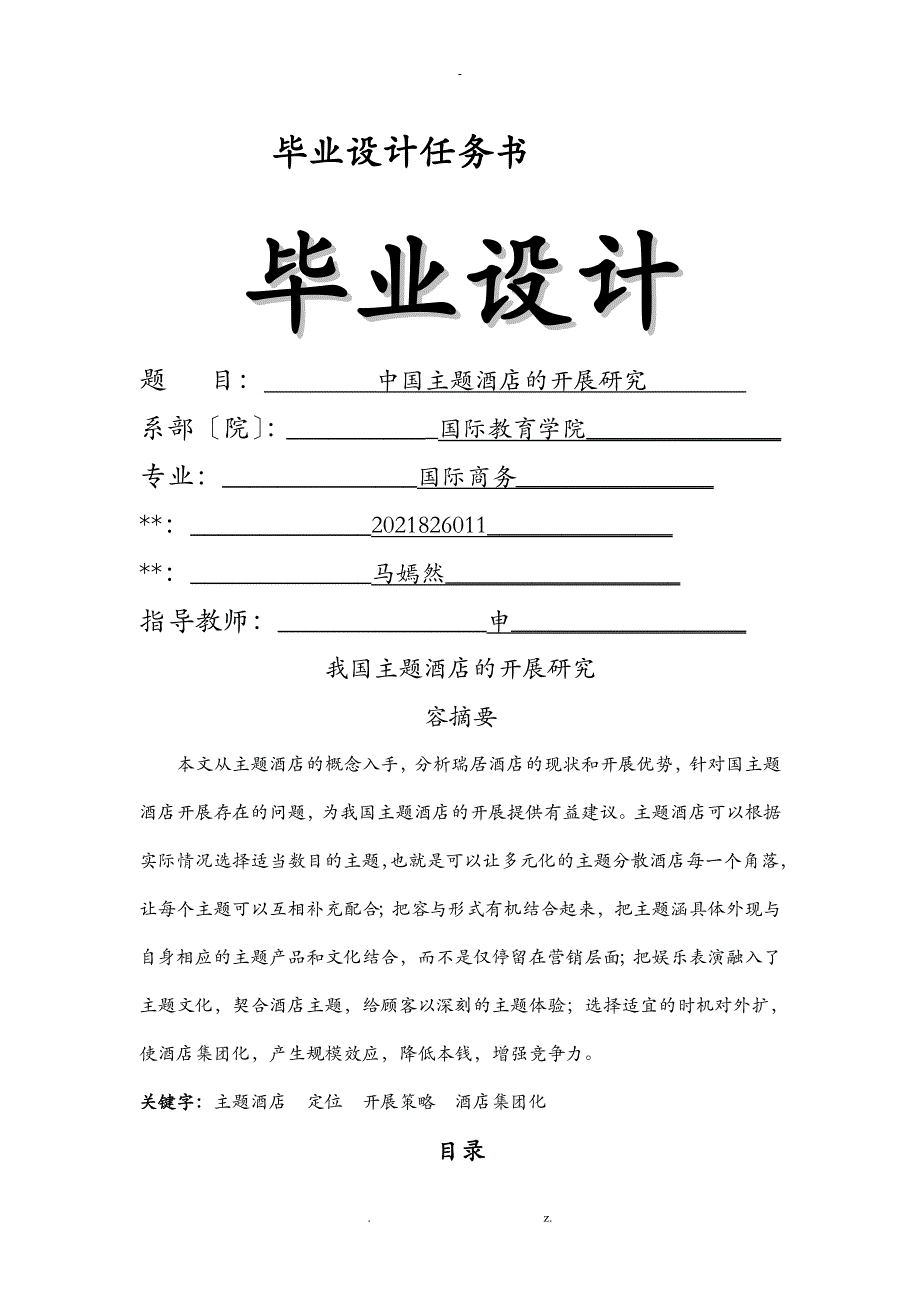 -
毕业设计任务书
毕业设计
题 目： 中国主题酒店的开展研究
系部〔院〕： 国际教育学院
专业： 国际商务
**： 2021826011
**： 马嫣然
指导教师： 申
我国主题酒店的开展研究
容摘要
本文从主题酒店的概念入手，分析瑞居酒店的现状和开展优势，针对国主题
酒店开展存在的问题，为我国主题酒店的开展提供有益建议。主题酒店可以根据
实际情况选择适当数目的主题，也就是可以让多元化的主题分散酒店每一个角落，
让每个主题可以互相补充配合；把容与形式有机结合起来，把主题涵具体外现与
自身相应的主题产品和文化结合，而不是仅停留在营销层面；把娱乐表演融入了
主题文化，契合酒店主题，给顾客以深刻的主题体验；选择适宜的时机对外扩，
使酒店集团化，产生规模效应，降低本钱，增强竞争力。
关键字：主题酒店 定位 开展策略 酒店集团化
目录
. z.